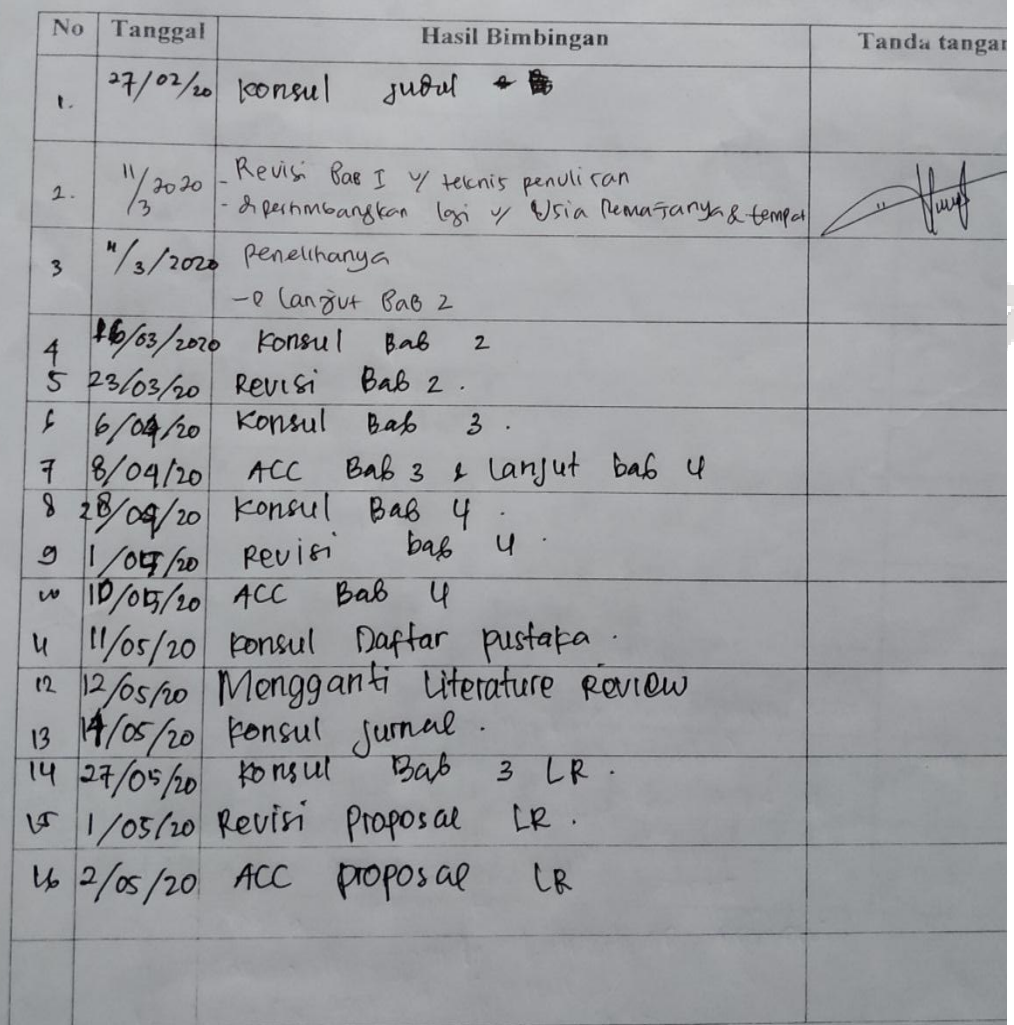 No Tanggal Hasil Bimbingan Tanda tangan
1. 27/02/20 Konsul Judul
2. 11/3 2020 - Revisi Bab I u/ teknis penulisan
- dipertimbangkan lagi u/ Usia Remajanya & tempat
3 11/3/2020 Penelitianya
→ lanjut Bab 2
4 16/03/2020 Konsul Bab 2
5 23/03/20 Revisi Bab 2.
6 6/04/20 Konsul Bab 3.
7 8/04/20 ACC Bab 3 & Lanjut bab 4
8 28/04/20 Konsul Bab 4.
9 1/05/20 Revisi bab 4.
10 10/05/20 ACC Bab 4
11 11/05/20 Konsul Daftar pustaka.
12 12/05/20 Mengganti Literature Review
13 14/05/20 Konsul Jurnal.
14 27/05/20 Konsul Bab 3 LR.
15 1/05/20 Revisi Proposal LR.
16 2/05/20 ACC proposal LR